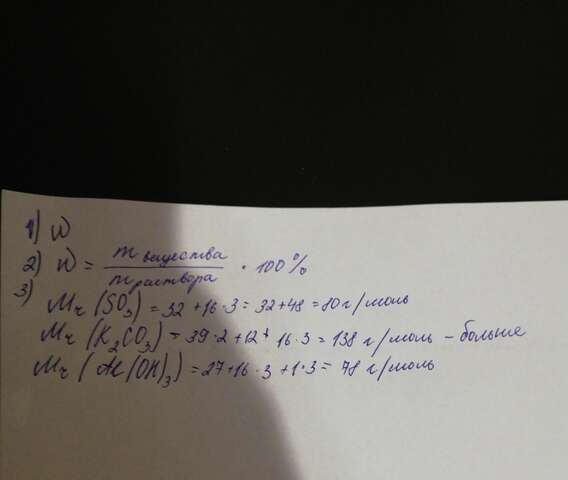 1) W
2) W = m вещества / m раствора · 100%
3)
Mr (SO3) = 32 + 16·3 = 32+48 = 80 г/моль
Mr (K2CO3) = 39·2 + 12 + 16·3 = 138 г/моль – больше
Mr (Al(OH)3) = 27+16·3 + 1·3 = 78 г/моль